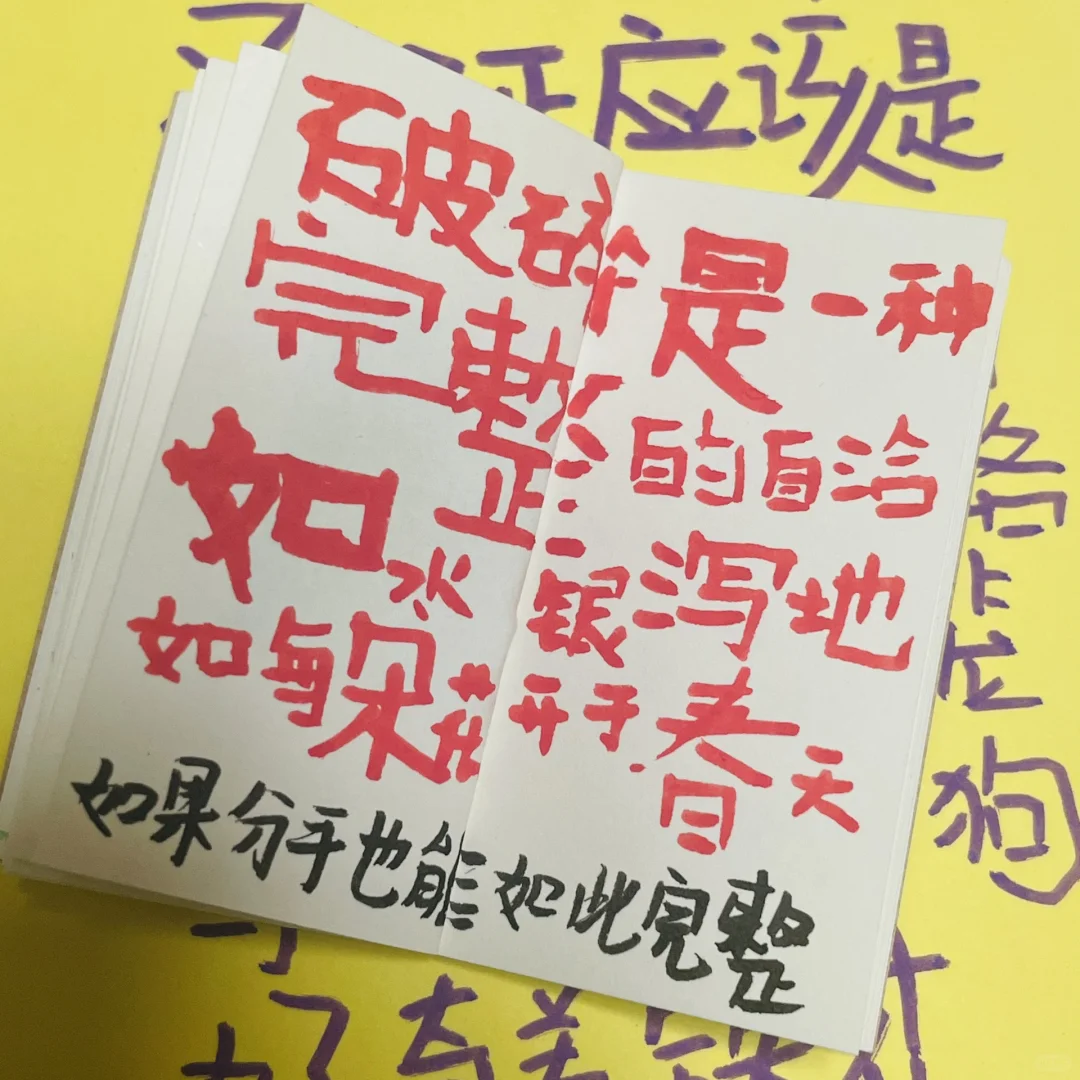 应该是
破碎是一种
完整的自洽
如水银泻地
如每朵花开于春天
如果分手也能如此完整
狗